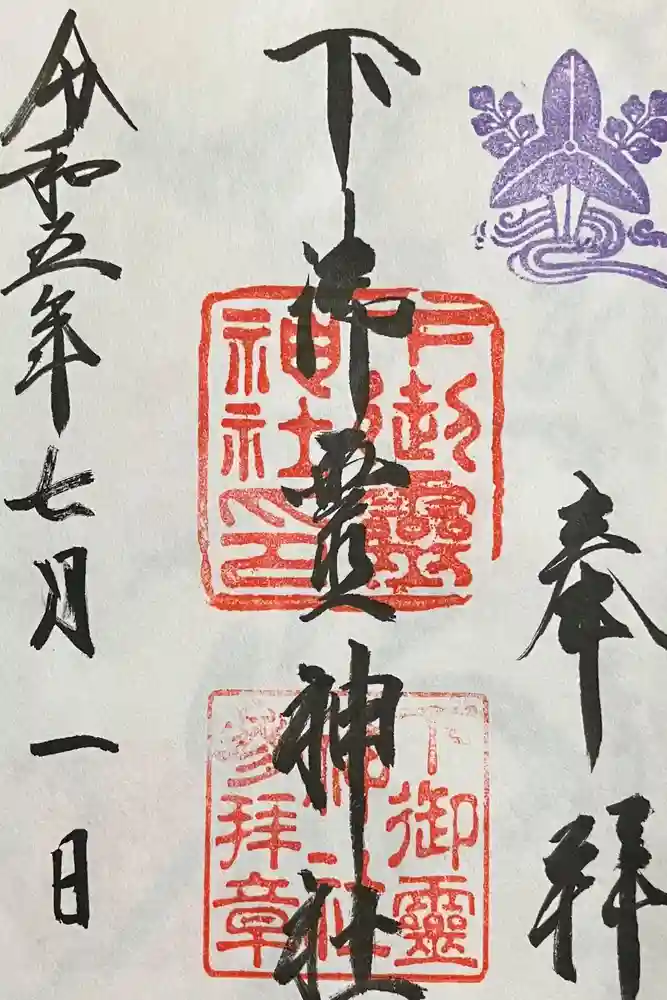 奉拝
下御靈神社
下御靈神社印
下御靈神社參拝章
令和五年七月一日